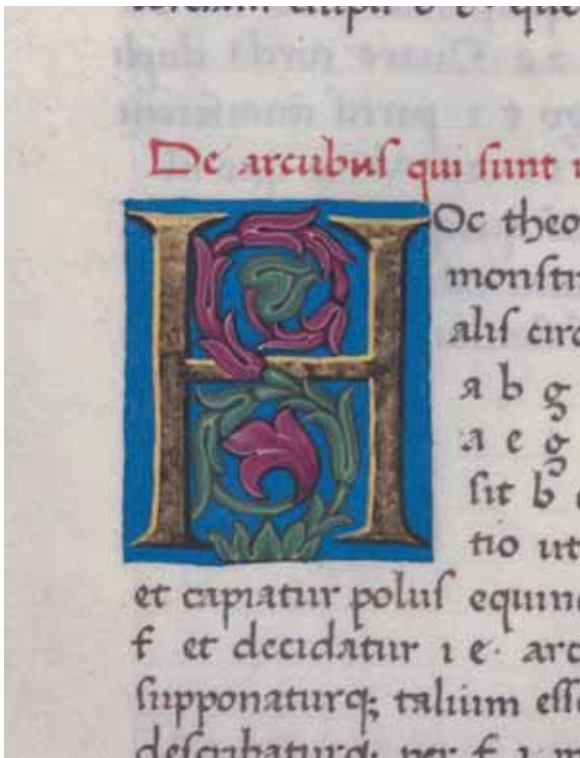 De arcubuſ qui ſunt
HOc theo
monſtr
aliſ circ
a b g
a e g
ſit b
tio ut
et capiatur poluſ equin
f et decidatur ι e · arc
ſupponaturq; talium eſſ
deſcribaturq; per f ι m